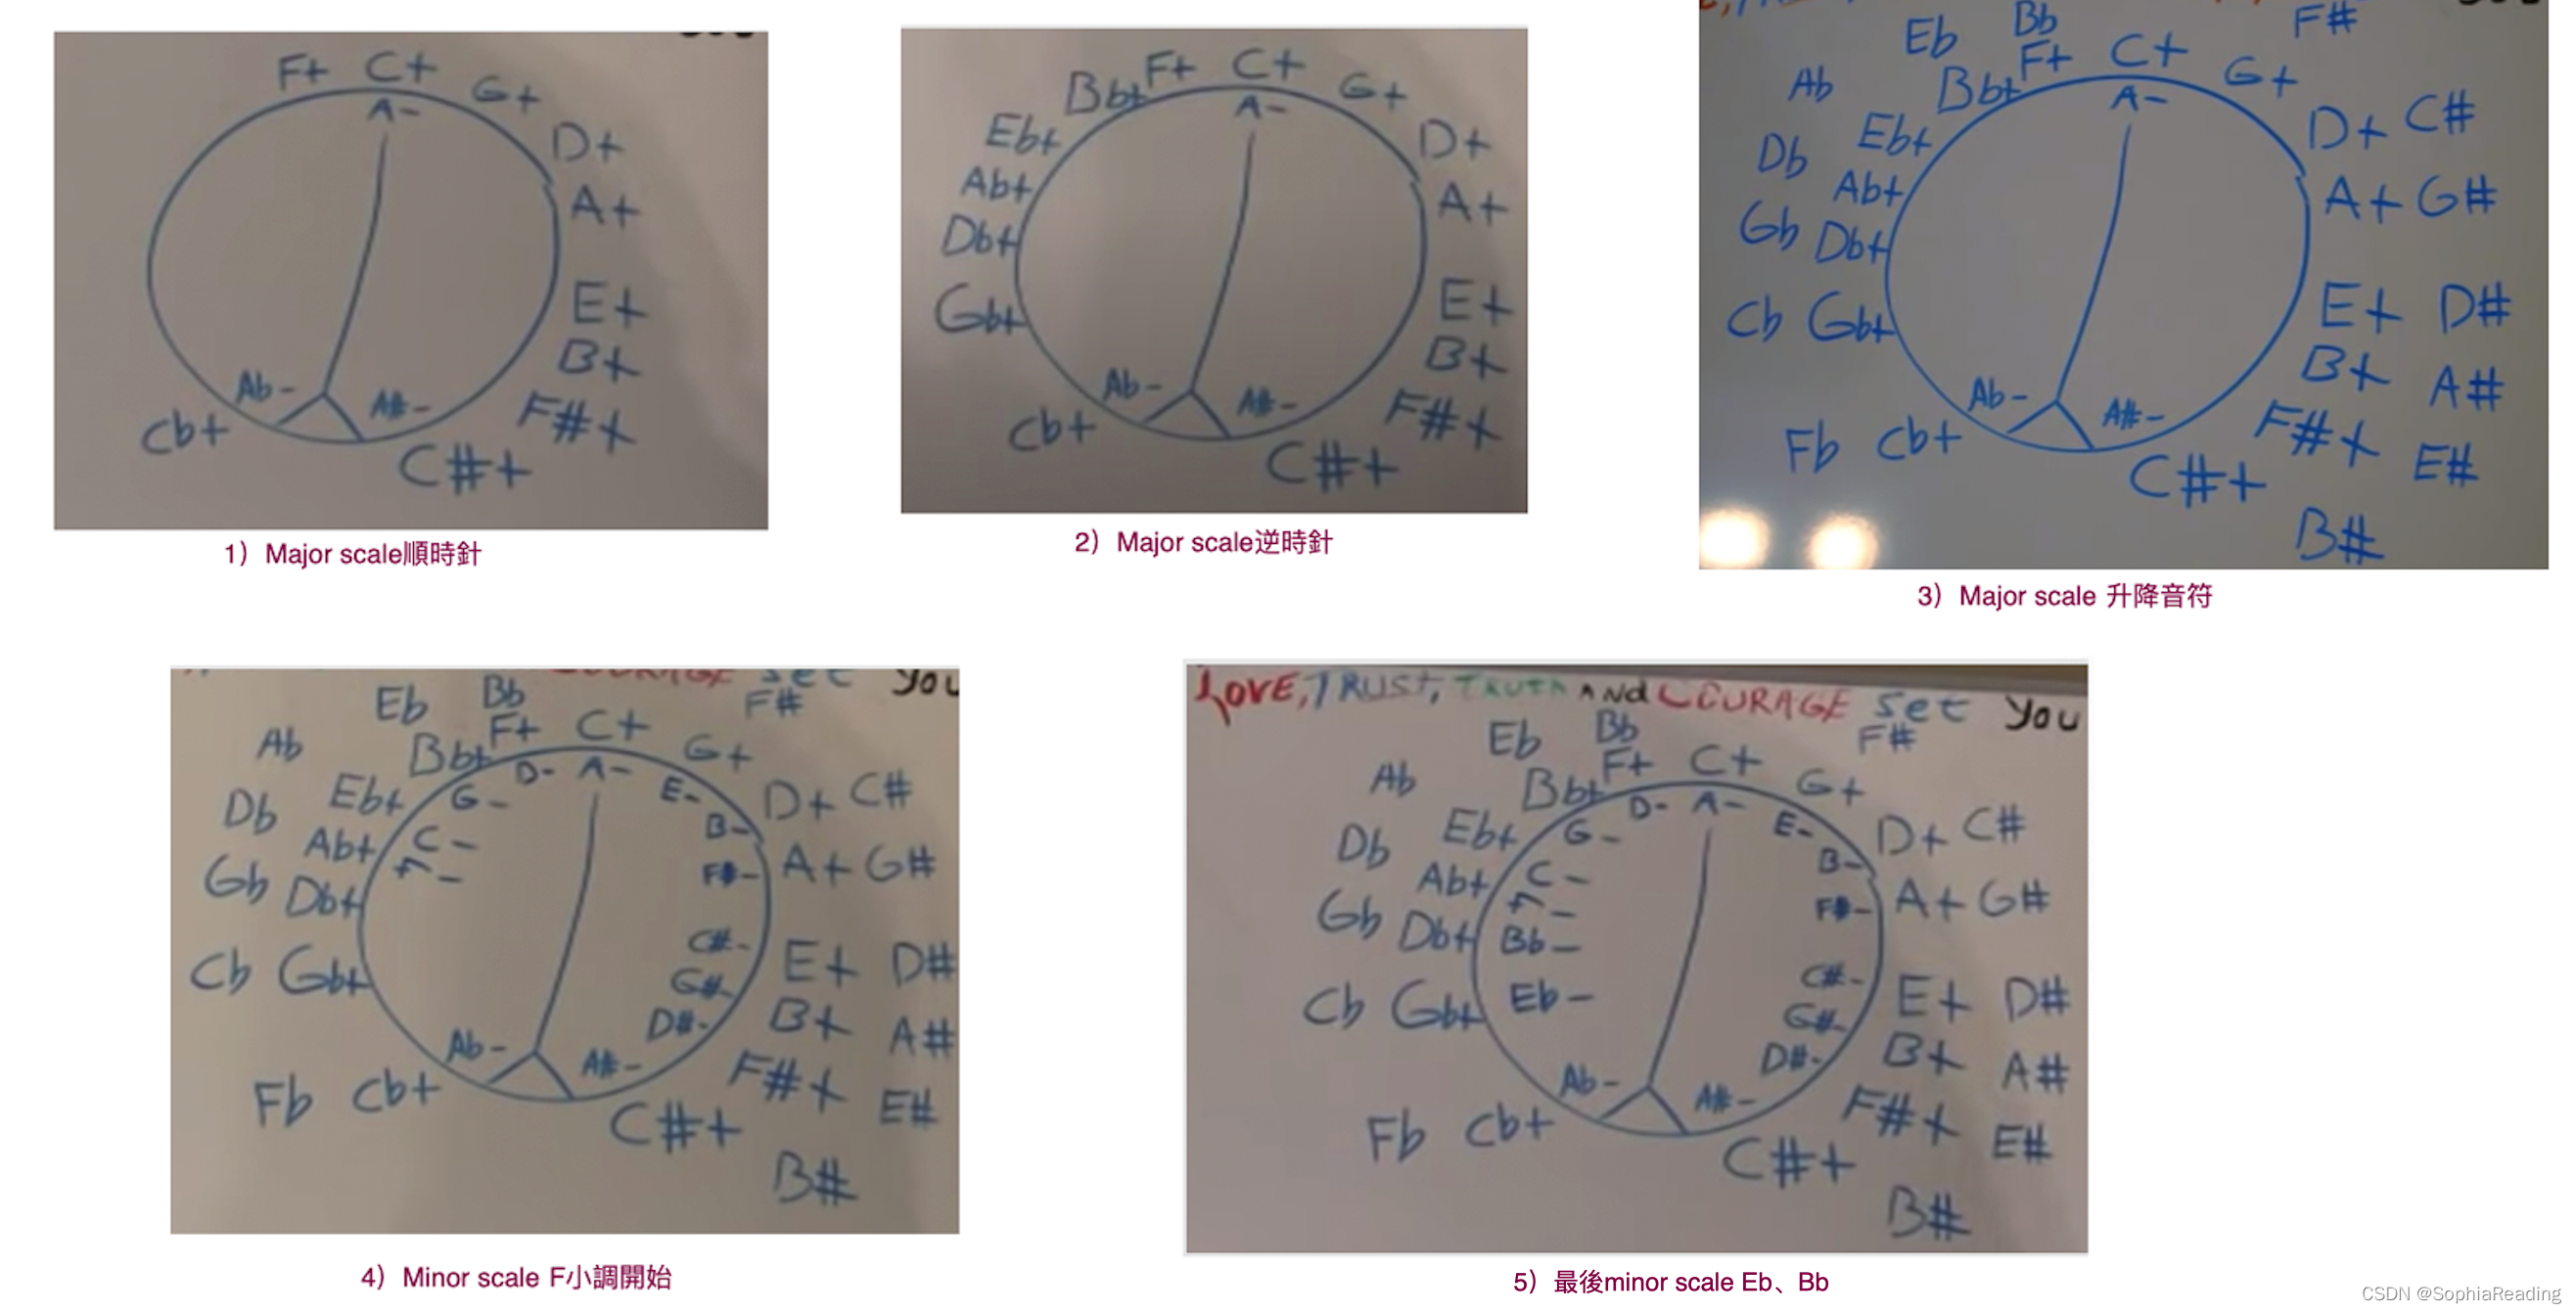 F+ C+ G+
A-
D+
A+
E+
B+
Ab- A#- F#+
Cb+ C#+
1）Major scale順時針
Bb+ F+ C+ G+
A-
Eb+ D+
Ab+ A+
Db+
Gb+ E+
B+
Ab- A#- F#+
Cb+ C#+
2）Major scale逆時針
Eb Bb F#
F+ C+ G+
Ab Bb+ A- D+ C#
Db Eb+
Ab+ A+ G#
Gb Db+
Cb Gb+ E+ D#
B+ A#
Ab- A#- F#+
Fb Cb+ C#+ E#
B#
3）Major scale 升降音符
COURAGE set you
Eb Bb F#
F+ C+ G+
Ab Bb+ D- A- E- D+ C#
Db Eb+ G- B-
Ab+ C- F#- A+ G#
Gb Db+ F-
C#- E+ D#
Cb Gb+ G#-
D#- B+ A#
Ab- A#- F#+
Fb Cb+ C#+ E#
B#
4）Minor scale F小調開始
LOVE, TRUST, TRUTH AND COURAGE set you
Eb Bb F#
F+ C+ G+
Ab Bb+ D- A- E- D+ C#
Db Eb+ G- B-
Ab+ C- F#- A+ G#
Gb Db+ F-
Bb-
Cb Gb+ Eb- C#- E+ D#
G#-
D#- B+ A#
Ab- A#- F#+
Fb Cb+ C#+ E#
B#
5）最後minor scale Eb、Bb
CSDN @SophiaReading